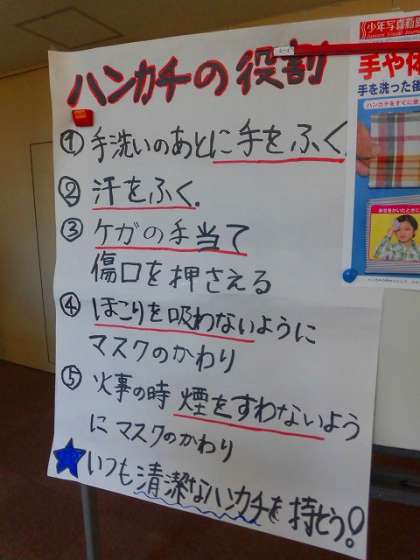 ハンカチの役割
① 手洗いのあとに手をふく
② 汗をふく.
③ ケガの手当て
傷口を押さえる
④ ほこりを吸わないように
マスクのかわり
⑤ 火事の時 煙をすわないよう
に マスクのかわり
★いつも清潔なハンカチを持とう!
少年写真新聞
手や体
手を洗った後
ハンカチをすぐに出